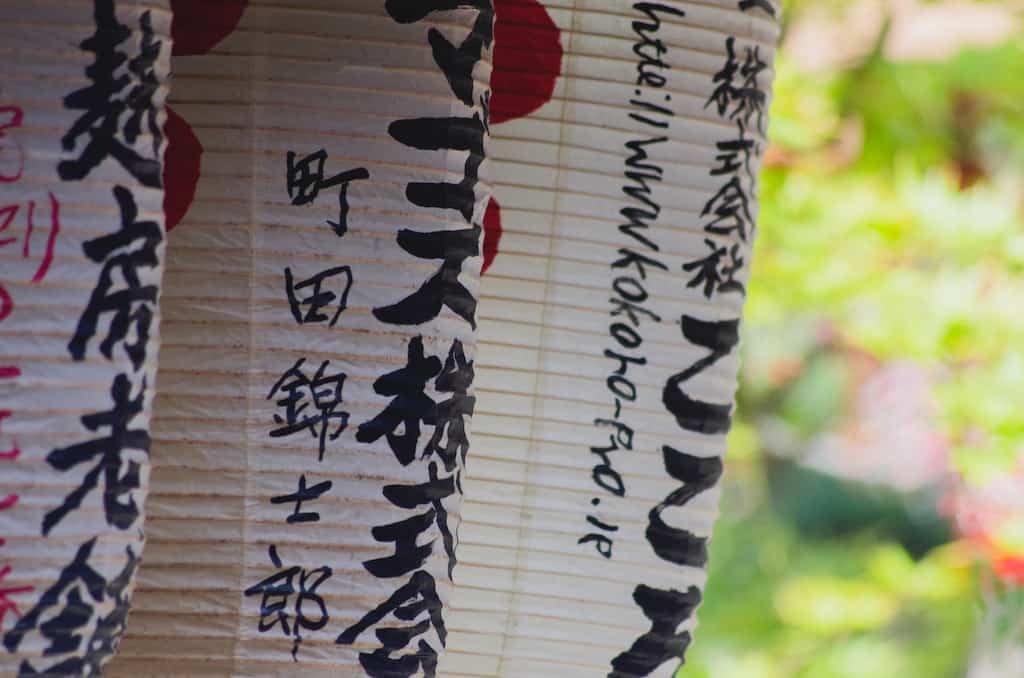 株式会社ココ
http://www.kokoho-pro.jp
マエス株式会
町田錦士郎
麩房老舗